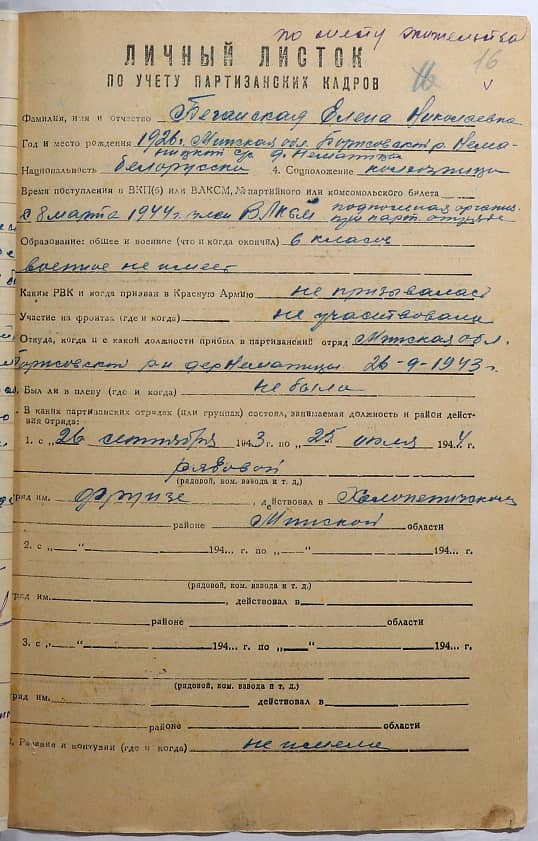 по месту жительства
16
16
ЛИЧНЫЙ ЛИСТОК
ПО УЧЕТУ ПАРТИЗАНСКИХ КАДРОВ
Фамилия, имя и отчество Беганская Елена Николаевна
Год и место рождения 1926г. Минская обл. Борисовский р. Нема-
ницкий с/с д. Неманица
Национальность белорусска 4. Соцположение колхозница
Время поступления в ВКП(б) или ВЛКСМ, № партийного или комсомольского билета
с 8 марта 1944 г. член ВЛКСМ подпольная организ. при парт. отряде
Образование: общее и военное (что и когда окончил) 6 классов
военное не имеет
Каким РВК и когда призван в Красную Армию не призывалась
Участие на фронтах (где и когда) не участвовала
Откуда, когда и с какой должности прибыл в партизанский отряд Минская обл.
Борисовский р-н дер Неманица 26-9-1943 г.
Был ли в плену (где и когда) не была
В каких партизанских отрядах (или группах) состоял, занимаемая должность и район дейст-
вия отряда:
1. с „26 сентября 1943 г. по „25 июля 1944 г.
рядовой
(рядовой, ком. взвода и т. д.)
ряд им. Фрунзе, действовал в Холопеничском
районе Минской области
2. с „ “ 194... г. по „ “ 194... г.
(рядовой, ком. взвода и т. д.)
ряд им. , действовал в
районе области
3. с „ “ 194... г. по „ “ 194... г.
(рядовой, ком. взвода и т. д.)
ряд им. действовал в
районе области
Ранения и контузии (где и когда) не имела